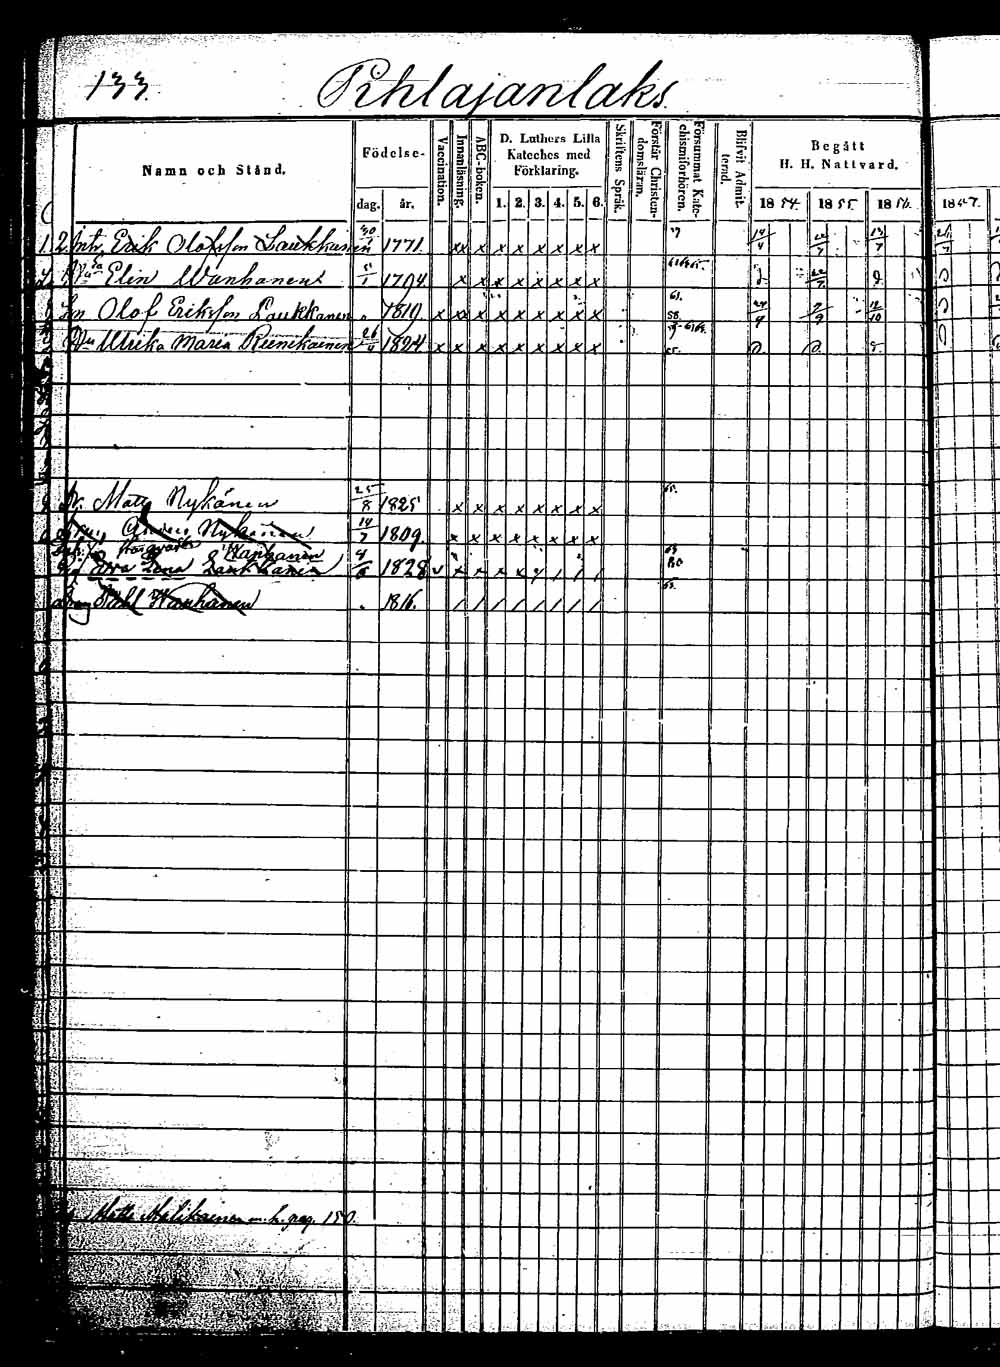 133. Pihlajanlaks
Namn och Stånd. Födelse- dag. år. Vaccination. Innanläsning. ABC-boken. D. Luthers Lilla Kateches med Förklaring. 1. 2. 3. 4. 5. 6. Skriftens Språk. Förstår Christendomsläran. Försummat Katechismiförhören. Blifvit Admitterad. Begått H. H. Nattvard. 1854. 1855. 1856. 1847.
Erik Olofsson Laukkanen 30 1771. xx x x x x x x x
Elin Wanhanen 1794. x x x x x x x x
Olof Eriksson Laukkanen 1819. x xx x x x x x x x 61. 58.
Ulrika Maria Reinikainen 26/4 1824 x x x x x x x x x
Matts Nykänen 25/8 1825 x x x x x x x x 65.
Nykänen 14/7 1809. x x x x x x x x
Wanhanen
Eva Lena Laukkanen 4/6 1828
Påhl Wanhanen 1816. / / / / / / / /
Matts m. h. pag. 150.